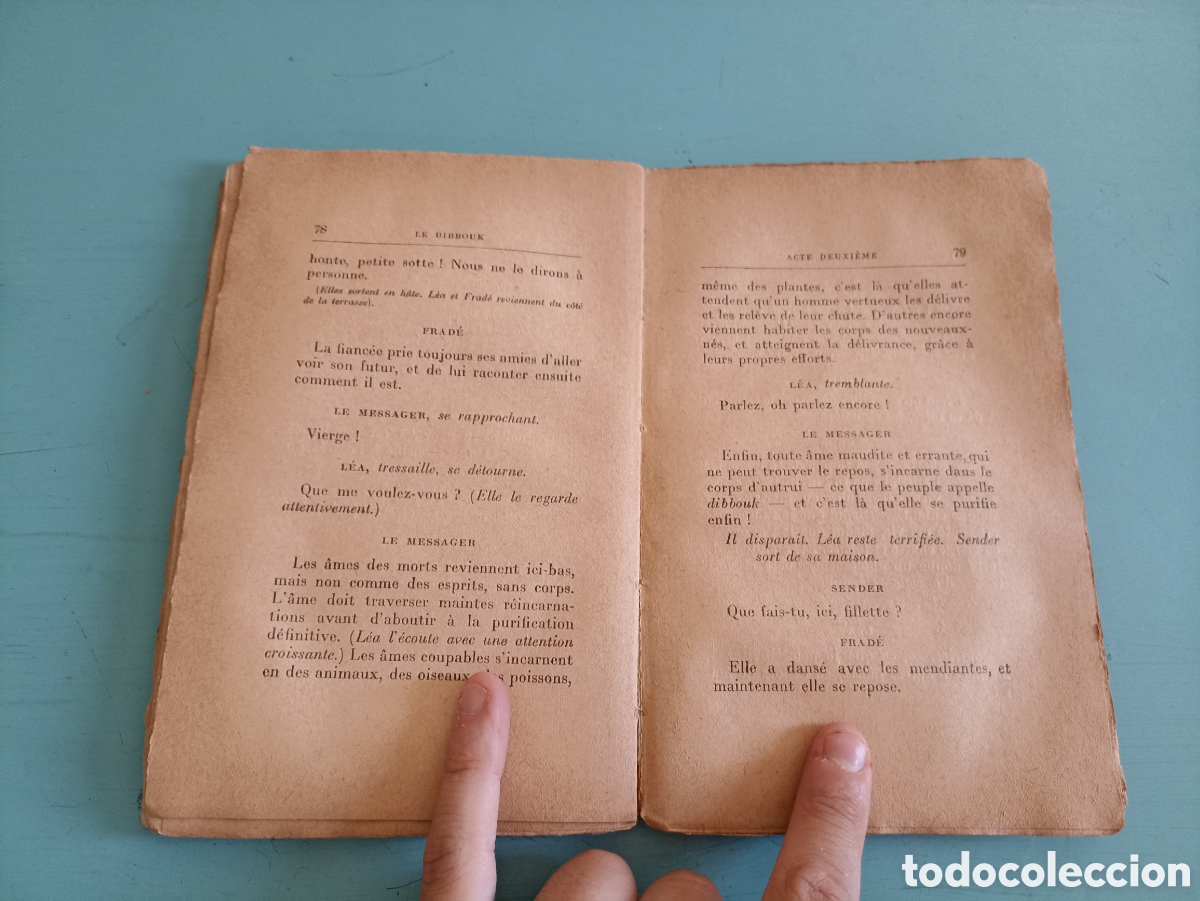 78
LE DIBBOUK
honte, petite sotte ! Nous ne le dirons à
personne.
(Elles sortent en hâte. Léa et Fradé reviennent du côté
de la terrasse).
FRADÉ
La fiancée prie toujours ses amies d'aller
voir son futur, et de lui raconter ensuite
comment il est.
LE MESSAGER, se rapprochant.
Vierge !
LÉA, tressaille, se détourne.
Que me voulez-vous ? (Elle le regarde
attentivement.)
LE MESSAGER
Les âmes des morts reviennent ici-bas,
mais non comme des esprits, sans corps.
L'âme doit traverser maintes réincarna-
tions avant d'aboutir à la purification
définitive. (Léa l'écoute avec une attention
croissante.) Les âmes coupables s'incarnent
en des animaux, des oiseaux, poissons,
ACTE DEUXIÈME
79
même des plantes, c'est là qu'elles at-
tendent qu'un homme vertueux les délivre
et les relève de leur chute. D'autres encore
viennent habiter les corps des nouveaux-
nés, et atteignent la délivrance, grâce à
leurs propres efforts.
LÉA, tremblante.
Parlez, oh parlez encore !
LE MESSAGER
Enfin, toute âme maudite et errante, qui
ne peut trouver le repos, s'incarne dans le
corps d'autrui — ce que le peuple appelle
dibbouk — et c'est là qu'elle se purifie
enfin !
Il disparaît. Léa reste terrifiée. Sender
sort de sa maison.
SENDER
Que fais-tu, ici, fillette ?
FRADÉ
Elle a dansé avec les mendiantes, et
maintenant elle se repose.
todocoleccion